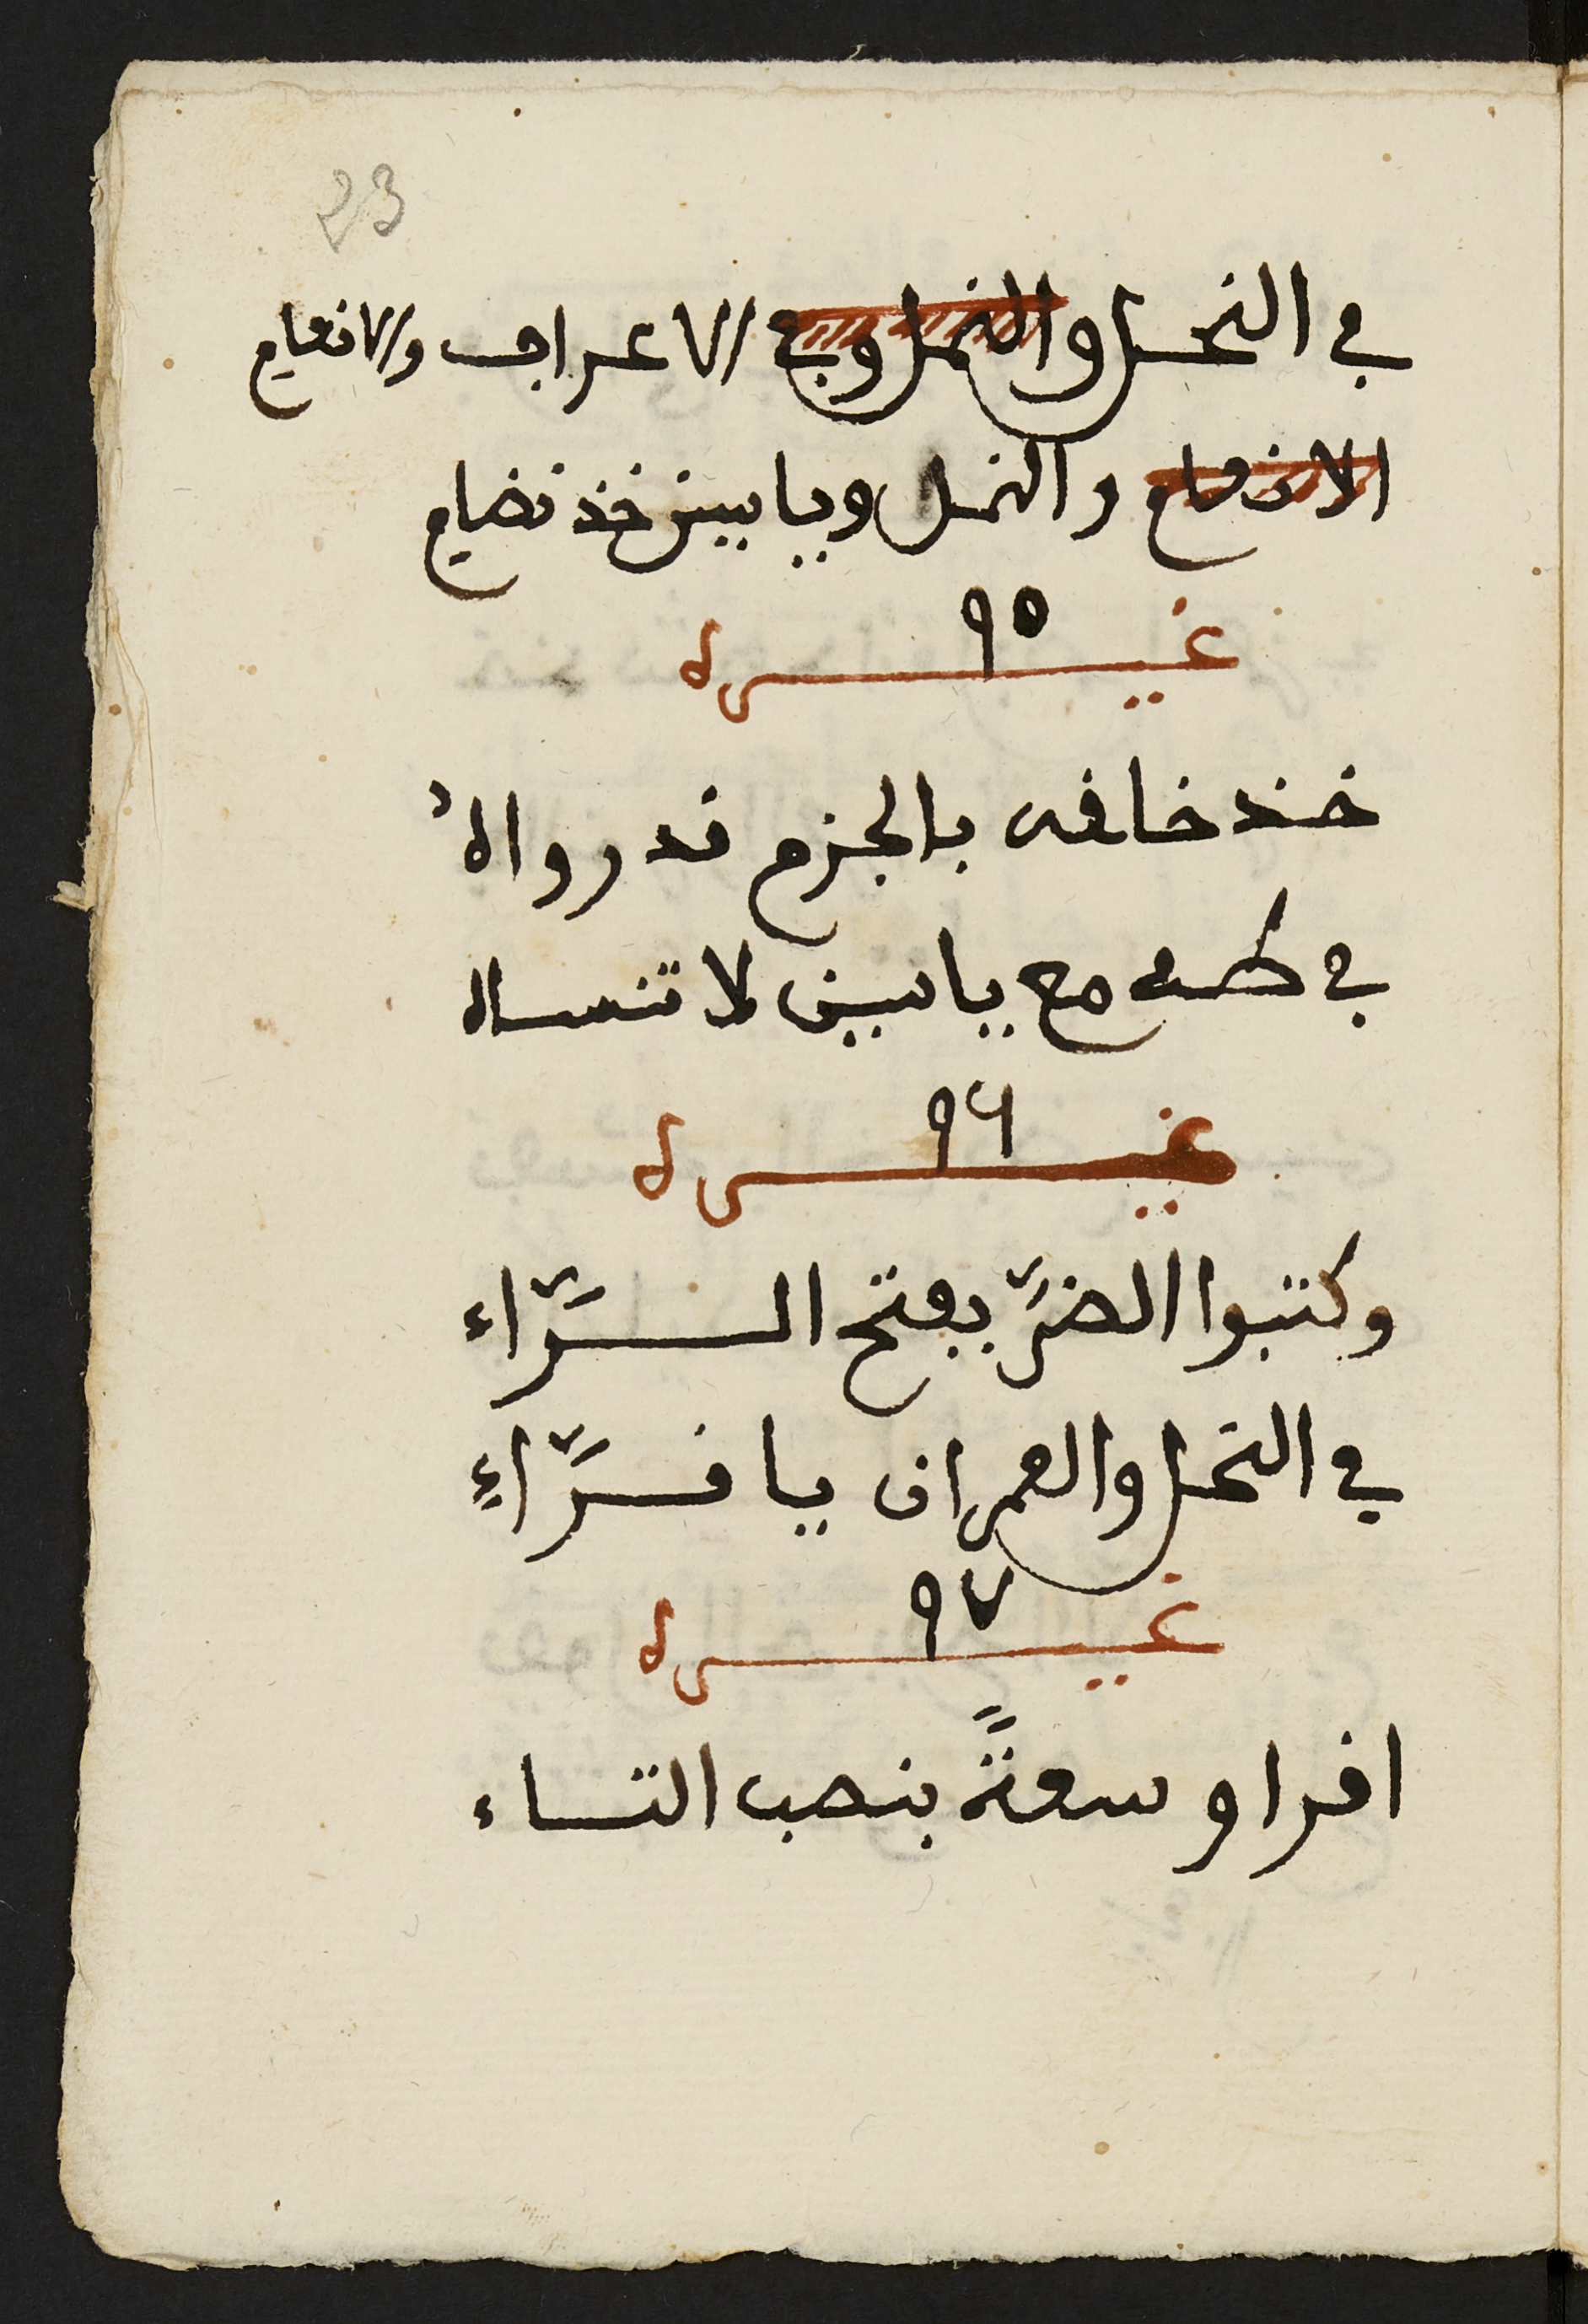 23
في النحل والنمل وفي الاعراف والانعام
الانعام والنمل ويا سين خذ نضام
غيره ٩٥
خذ خافه بالجزم قد رواهُ
في طه مع ياسين لا تنساه
غيره ٩٦
وكتبوا الضرَّ بفتح الرَّاء
في النحل والعمران يا قرَّاءِ
غيره ٩٧
اقرا وسعةً بنصب التاء